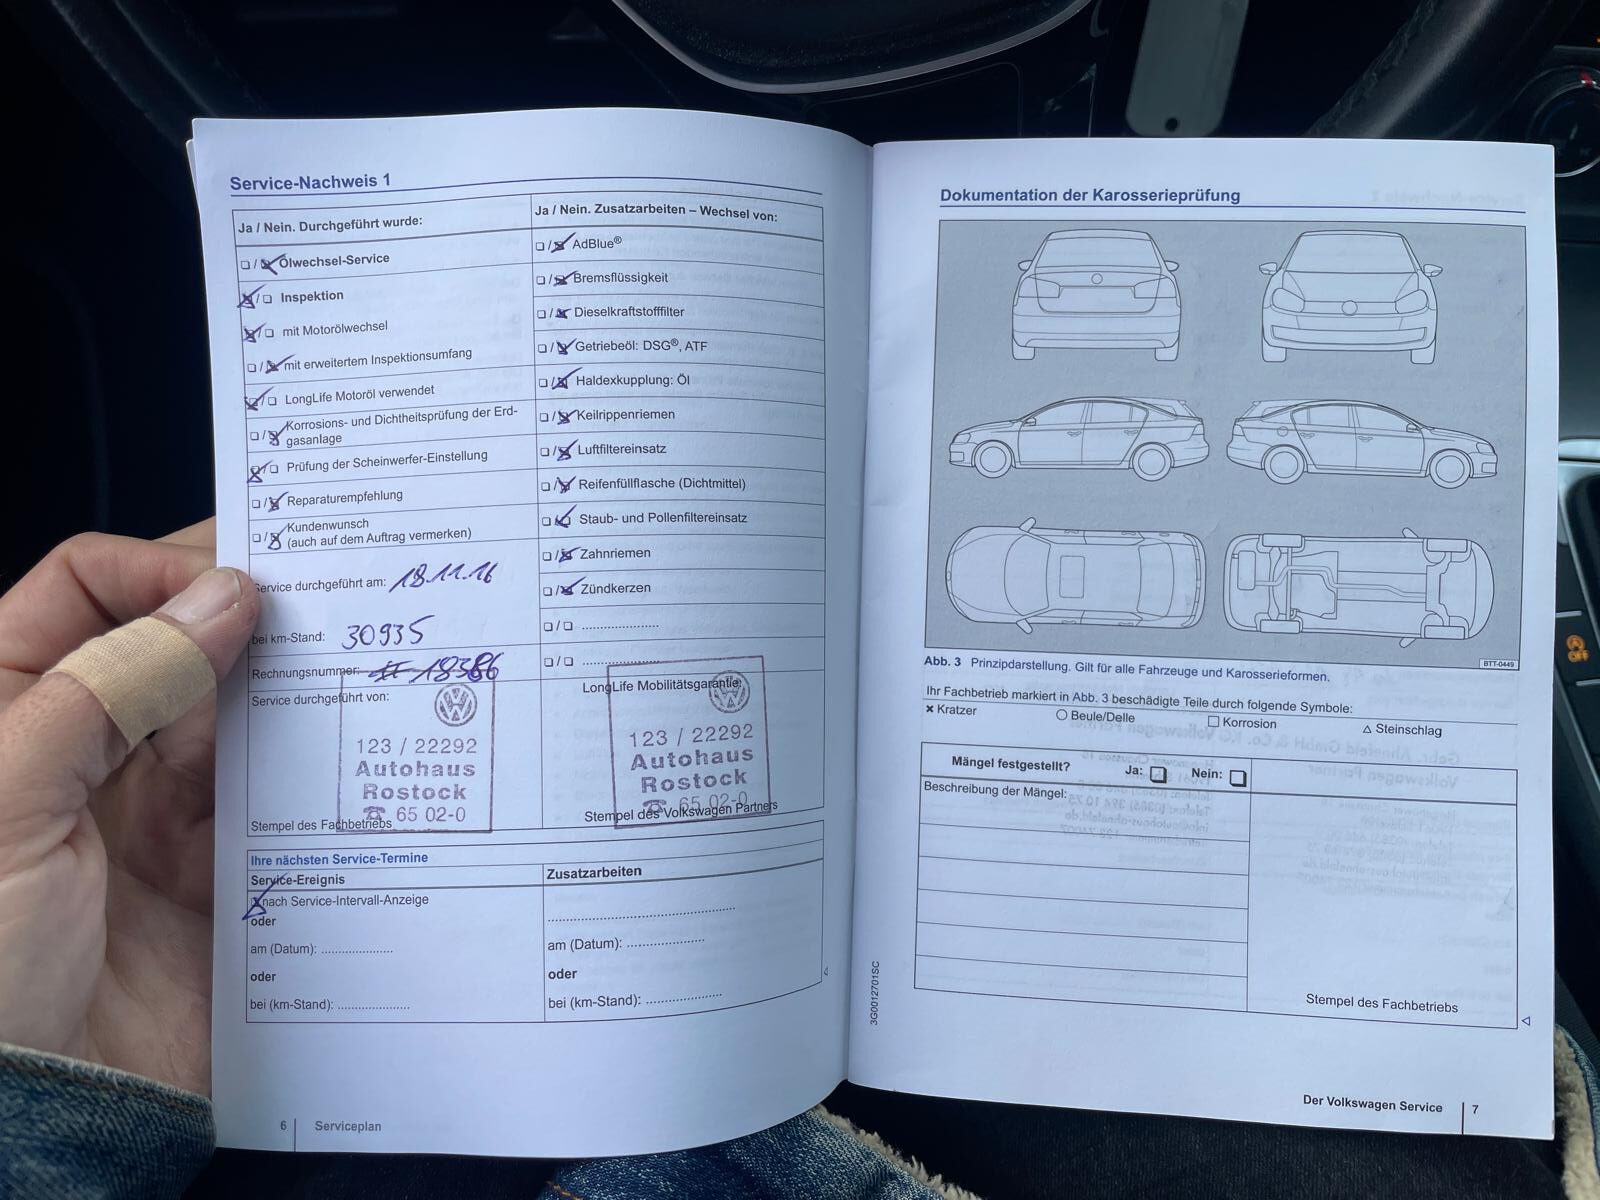 Service-Nachweis 1
Ja / Nein. Durchgeführt wurde:
☐/☒ Ölwechsel-Service
☒/☐ Inspektion
☒/☐ mit Motorölwechsel
☐/☒ mit erweitertem Inspektionsumfang
☒/☐ LongLife Motoröl verwendet
☐/☒ Korrosions- und Dichtheitsprüfung der Erd-
gasanlage
☒/☐ Prüfung der Scheinwerfer-Einstellung
☐/☒ Reparaturempfehlung
☐/☒ Kundenwunsch
(auch auf dem Auftrag vermerken)
Service durchgeführt am: 18.11.16
bei km-Stand: 30935
Rechnungsnummer: # 18386
Service durchgeführt von:
123 / 22292
Autohaus
Rostock
☎ 65 02-0
Stempel des Fachbetriebs
Ja / Nein. Zusatzarbeiten – Wechsel von:
☐/☒ AdBlue®
☐/☒ Bremsflüssigkeit
☐/☒ Dieselkraftstofffilter
☐/☒ Getriebeöl: DSG®, ATF
☐/☒ Haldexkupplung: Öl
☐/☒ Keilrippenriemen
☐/☒ Luftfiltereinsatz
☐/☒ Reifenfüllflasche (Dichtmittel)
☐/☒ Staub- und Pollenfiltereinsatz
☐/☒ Zahnriemen
☐/☒ Zündkerzen
☐/☐ ....................
☐/☐ ....................
LongLife Mobilitätsgarantie:
123 / 22292
Autohaus
Rostock
☎ 65 02-0
Stempel des Volkswagen Partners
Ihre nächsten Service-Termine
Service-Ereignis
☒ nach Service-Intervall-Anzeige
oder
am (Datum): ....................
oder
bei (km-Stand): ....................
Zusatzarbeiten
..................................................
am (Datum): ....................
oder
bei (km-Stand): ....................
6 Serviceplan
Dokumentation der Karosserieprüfung
BTT-0449
Abb. 3 Prinzipdarstellung. Gilt für alle Fahrzeuge und Karosserieformen.
Ihr Fachbetrieb markiert in Abb. 3 beschädigte Teile durch folgende Symbole:
× Kratzer ○ Beule/Delle □ Korrosion △ Steinschlag
Mängel festgestellt? Ja: ☐ Nein: ☐
Beschreibung der Mängel:
Stempel des Fachbetriebs
3G0012701SC
Der Volkswagen Service 7
OFF